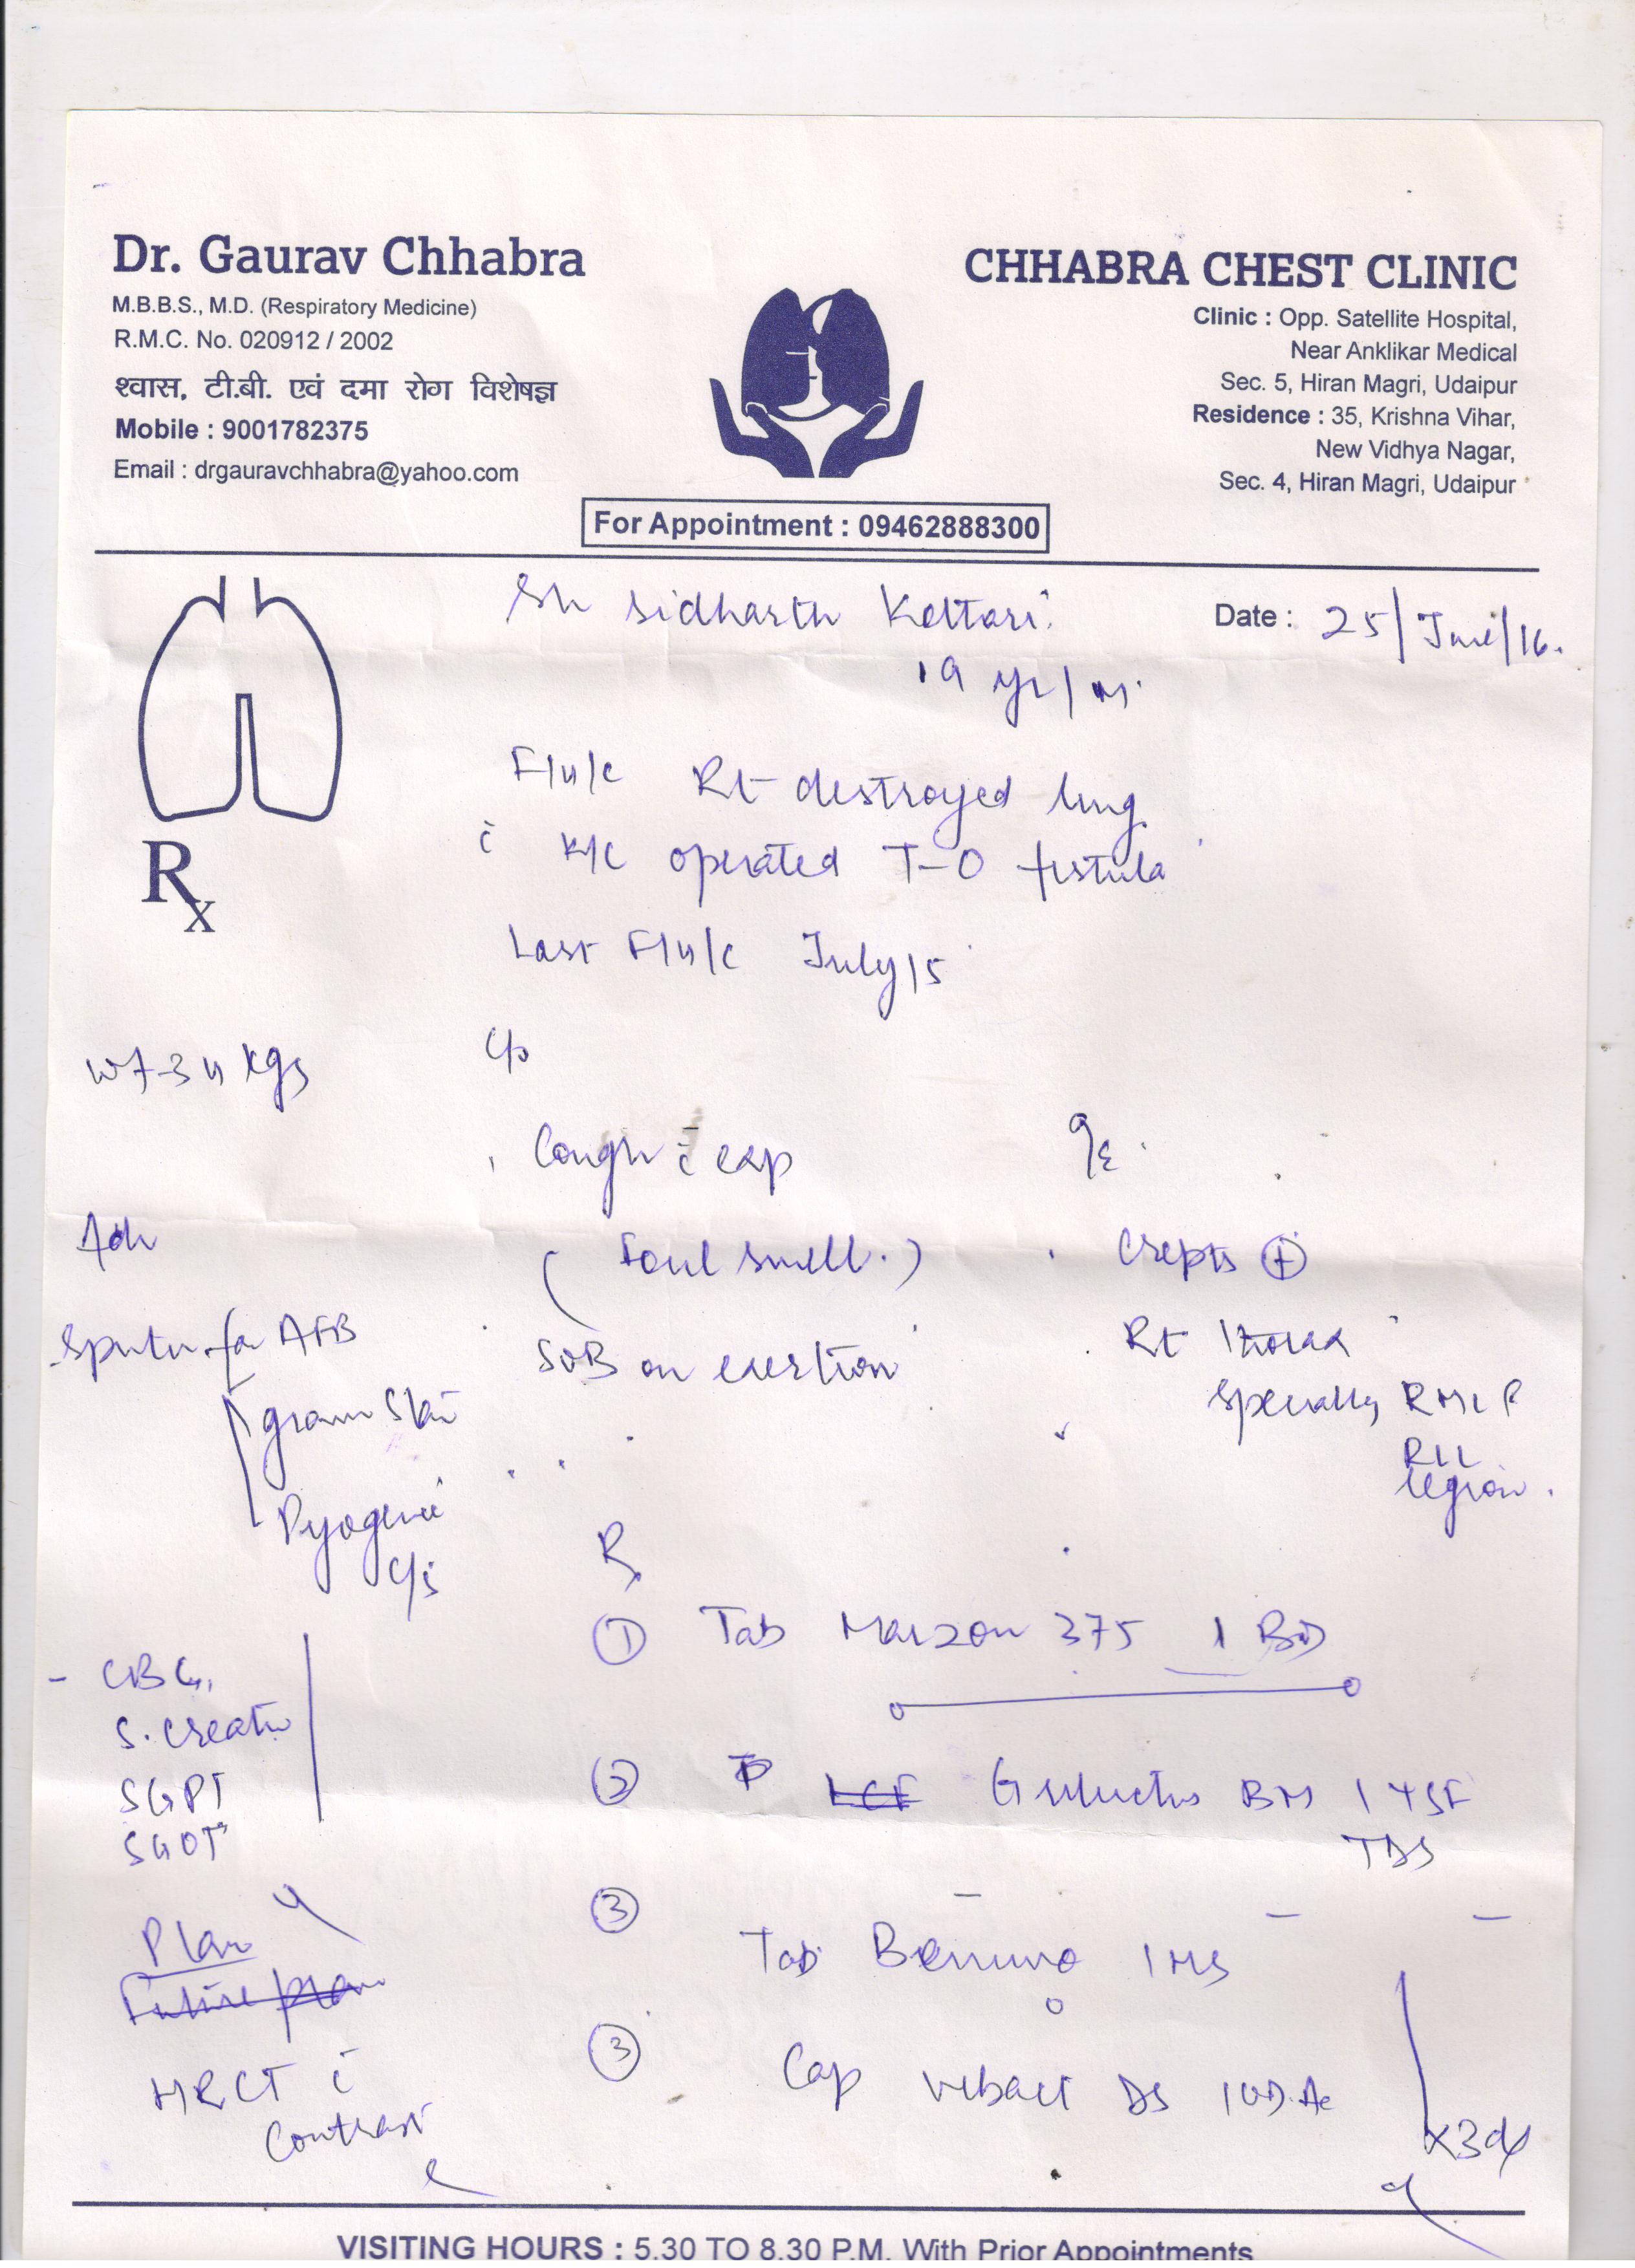 Dr. Gaurav Chhabra
M.B.B.S., M.D. (Respiratory Medicine)
R.M.C. No. 020912 / 2002
श्वास, टी.बी. एवं दमा रोग विशेषज्ञ
Mobile : 9001782375
Email : drgauravchhabra@yahoo.com
CHHABRA CHEST CLINIC
Clinic : Opp. Satellite Hospital,
Near Anklikar Medical
Sec. 5, Hiran Magri, Udaipur
Residence : 35, Krishna Vihar,
New Vidhya Nagar,
Sec. 4, Hiran Magri, Udaipur
For Appointment : 09462888300
Sh Sidharth Kottari.
Date : 25/June/16.
19 yr/M.
F/u/c Rt destroyed lung
c̄ K/c operated T-O fistula
Last F/u/c July 15
Rx
Wt-34 kgs
C/o
Cough c̄ exp
(Foul smell.)
SOB on exertion
O/E.
Crepts ⊕
Rt thorax
specially
RLL
region.
Adv
Sputum for AFB
gram stain
Pyogenic
C/s
- CBC,
S. creatin
SGPT
SGOT
Plan
Future plan
HRCT c̄
contrast
Rx
① Tab 375 1 BD
② LCF BM 1 TSF
TDS
③ Tab 1 HS
③ Cap DS 1 OD
x3d
VISITING HOURS : 5.30 TO 8.30 P.M. With Prior Appointments